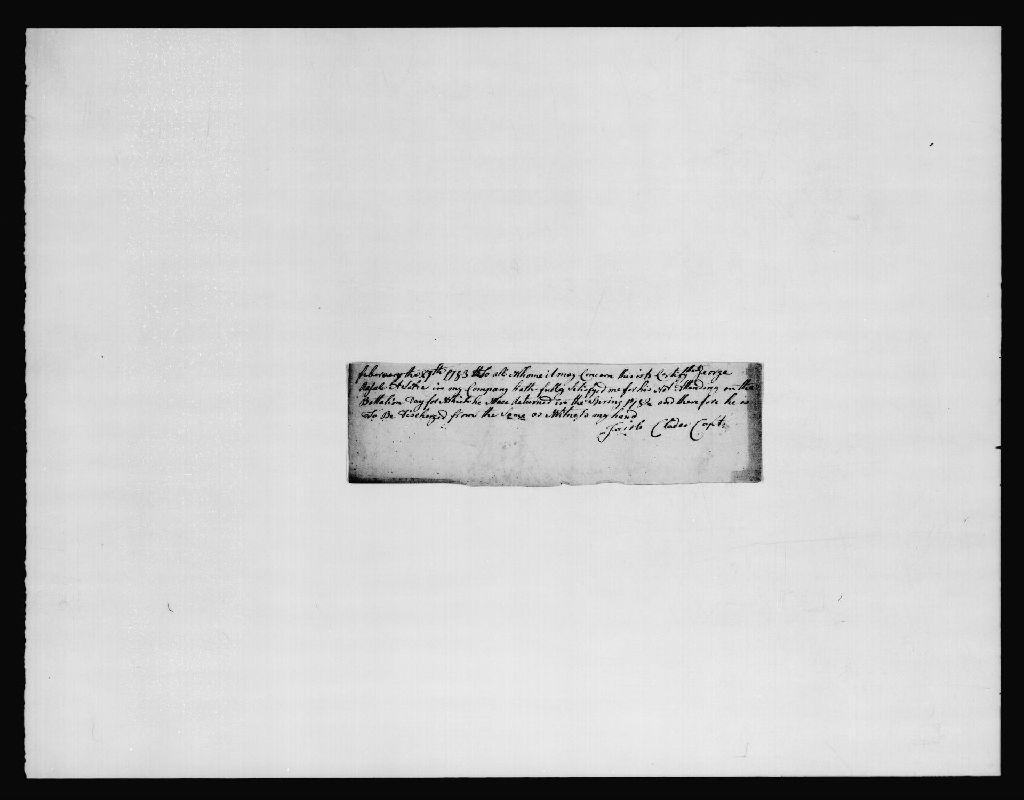 February the 27th 1783 to all Whome it may Concern this is to Certify that George
in my Company hath fully Satisfyd me for his Not Attending on the
Battalion Day for Which he Was Returned in the Spring 1782 and therefore he is
To Be Discherged from the Same as Witness my hand
Jacob Clader Capt.